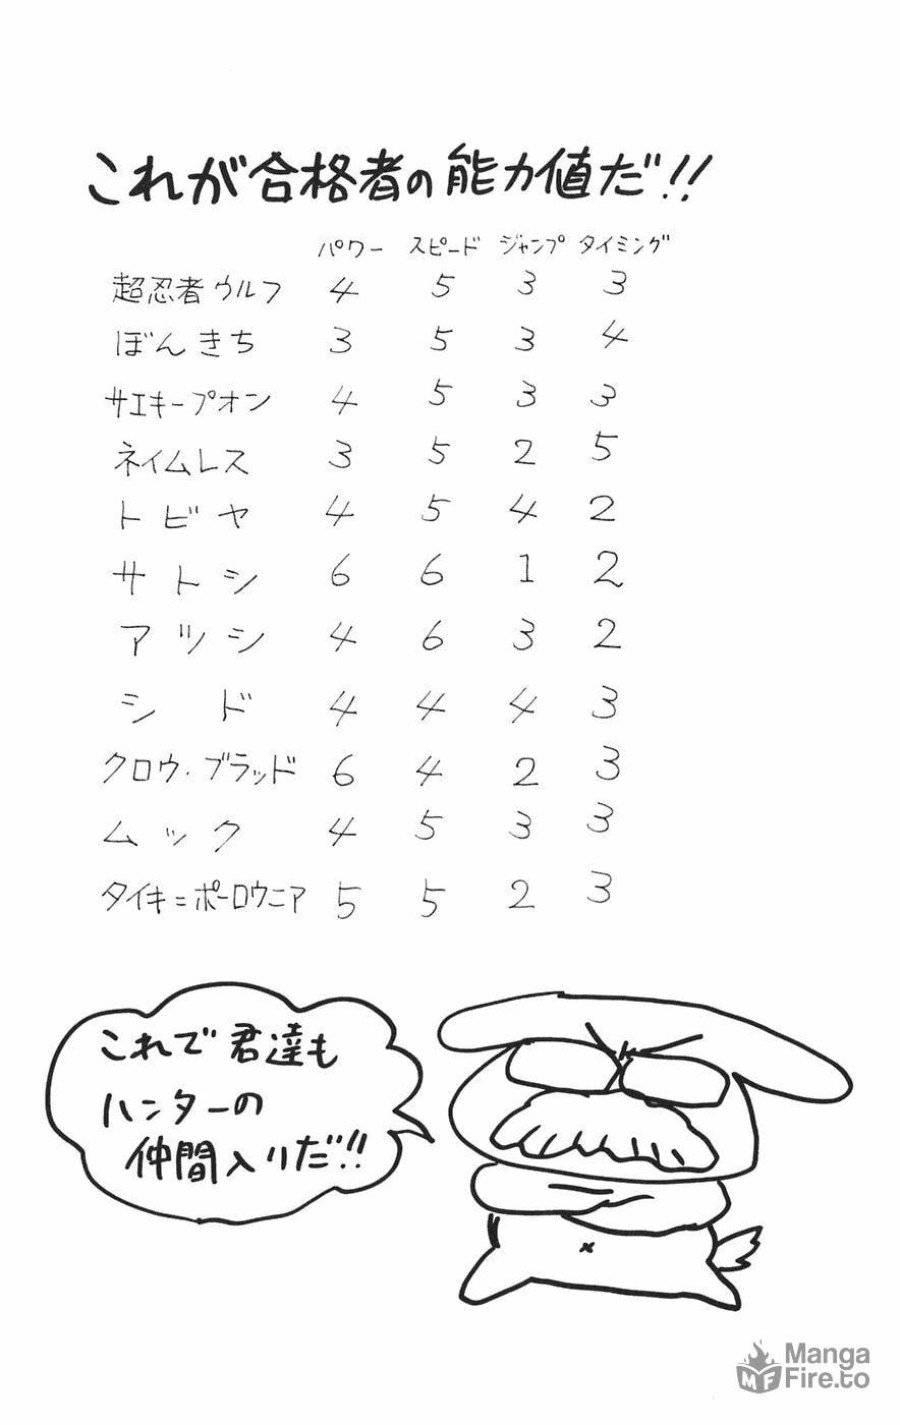 これが合格者の能力値だ!!
パワー スピード ジャンプ タイミング
超忍者ウルフ 4 5 3 3
ぼんきち 3 5 3 4
サエキープオン 4 5 3 3
ネイムレス 3 5 2 5
トビヤ 4 5 4 2
サトシ 6 6 1 2
アツシ 4 6 3 2
シド 4 4 4 3
クロウ・ブラッド 6 4 2 3
ムック 4 5 3 3
タイキ=ポーロウニア 5 5 2 3
これで君達も
ハンターの
仲間入りだ!!
Manga
Fire.to
MF